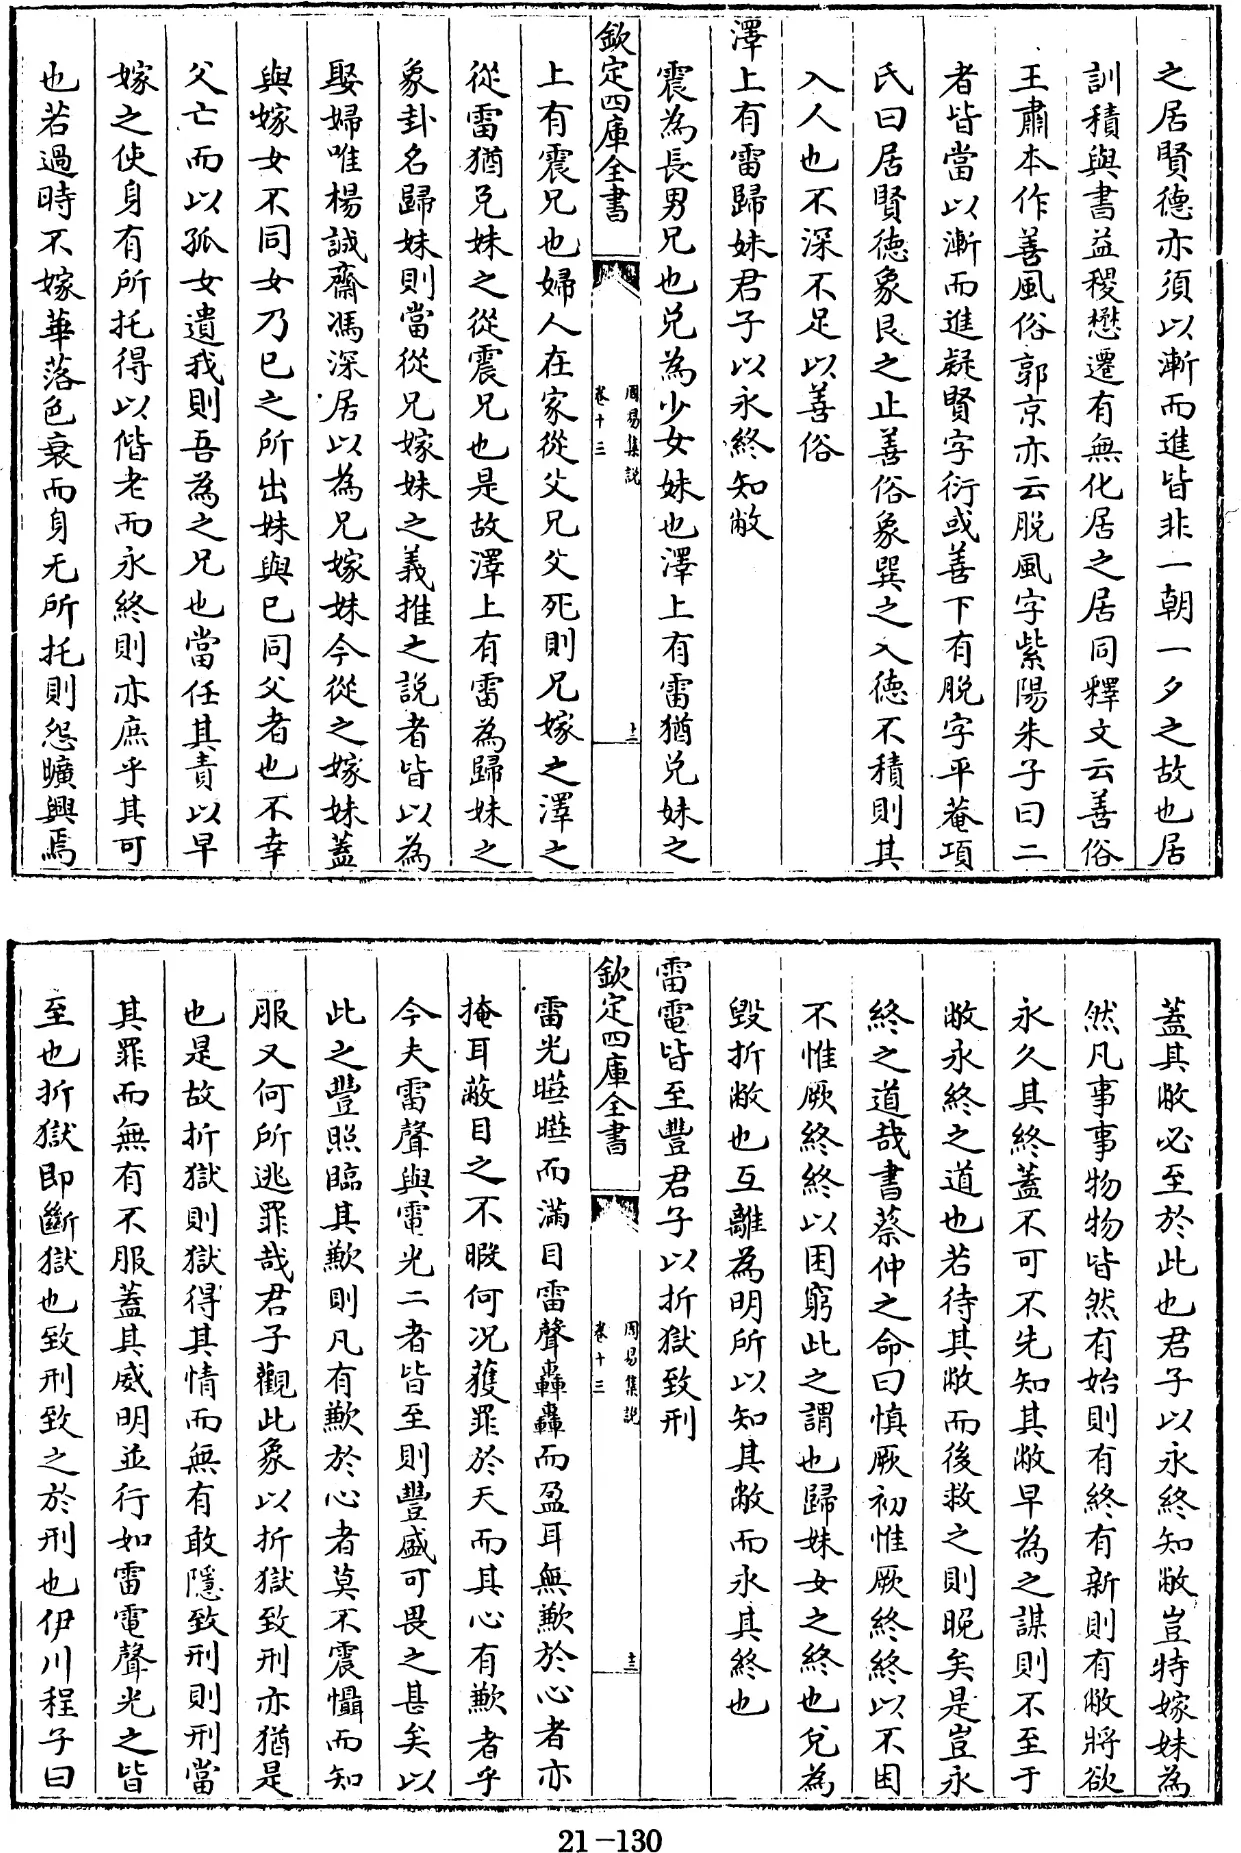 之居賢德亦須以漸而進皆非一朝一夕之故也居
訓積與書益稷懋遷有無化居之居同釋文云善俗
王肅本作善風俗郭京亦云脱風字紫陽朱子曰二
者皆當以漸而進疑賢字衍或善下有脱字平菴項
氏曰居賢德象艮之止善俗象巽之入德不積則其
入人也不深不足以善俗
澤上有雷歸妹君子以永終知敝
震為長男兄也兑為少女妹也澤上有雷猶兑妹之
欽定四庫全書
周易集説
卷十三
十二
上有震兄也婦人在家從父兄父死則兄嫁之澤之
從雷猶兑妹之從震兄也是故澤上有雷為歸妹之
象卦名歸妹則當從兄嫁妹之義推之説者皆以為
娶婦唯楊誠齋馮深居以為兄嫁妹今從之嫁妹蓋
與嫁女不同女乃已之所出妹與已同父者也不幸
父亡而以孤女遺我則吾為之兄也當任其責以早
嫁之使身有所托得以偕老而永終則亦庶乎其可
也若過時不嫁華落色衰而身无所托則怨曠興焉
蓋其敝必至於此也君子以永終知敝豈特嫁妹為
然凡事事物物皆然有始則有終有新則有敝將欲
永久其終蓋不可不先知其敝早為之謀則不至于
敝永終之道也若待其敝而後救之則晚矣是豈永
終之道哉書蔡仲之命曰慎厥初惟厥終終以不困
不惟厥終終以困窮此之謂也歸妹女之終也兑為
毀折敝也互離為明所以知其敝而永其終也
雷電皆至豐君子以折獄致刑
欽定四庫全書
周易集説
卷十三
十三
雷光曄曄而滿目雷聲轟轟而盈耳無歉於心者亦
掩耳蔽目之不暇何况獲罪於天而其心有歉者乎
今夫雷聲與電光二者皆至則豐盛可畏之甚矣以
此之豐照臨其歉則凡有歉於心者莫不震懾而知
服又何所逃罪哉君子觀此象以折獄致刑亦猶是
也是故折獄則獄得其情而無有敢隱致刑則刑當
其罪而無有不服蓋其威明並行如雷電聲光之皆
至也折獄即斷獄也致刑致之於刑也伊川程子曰
21-130